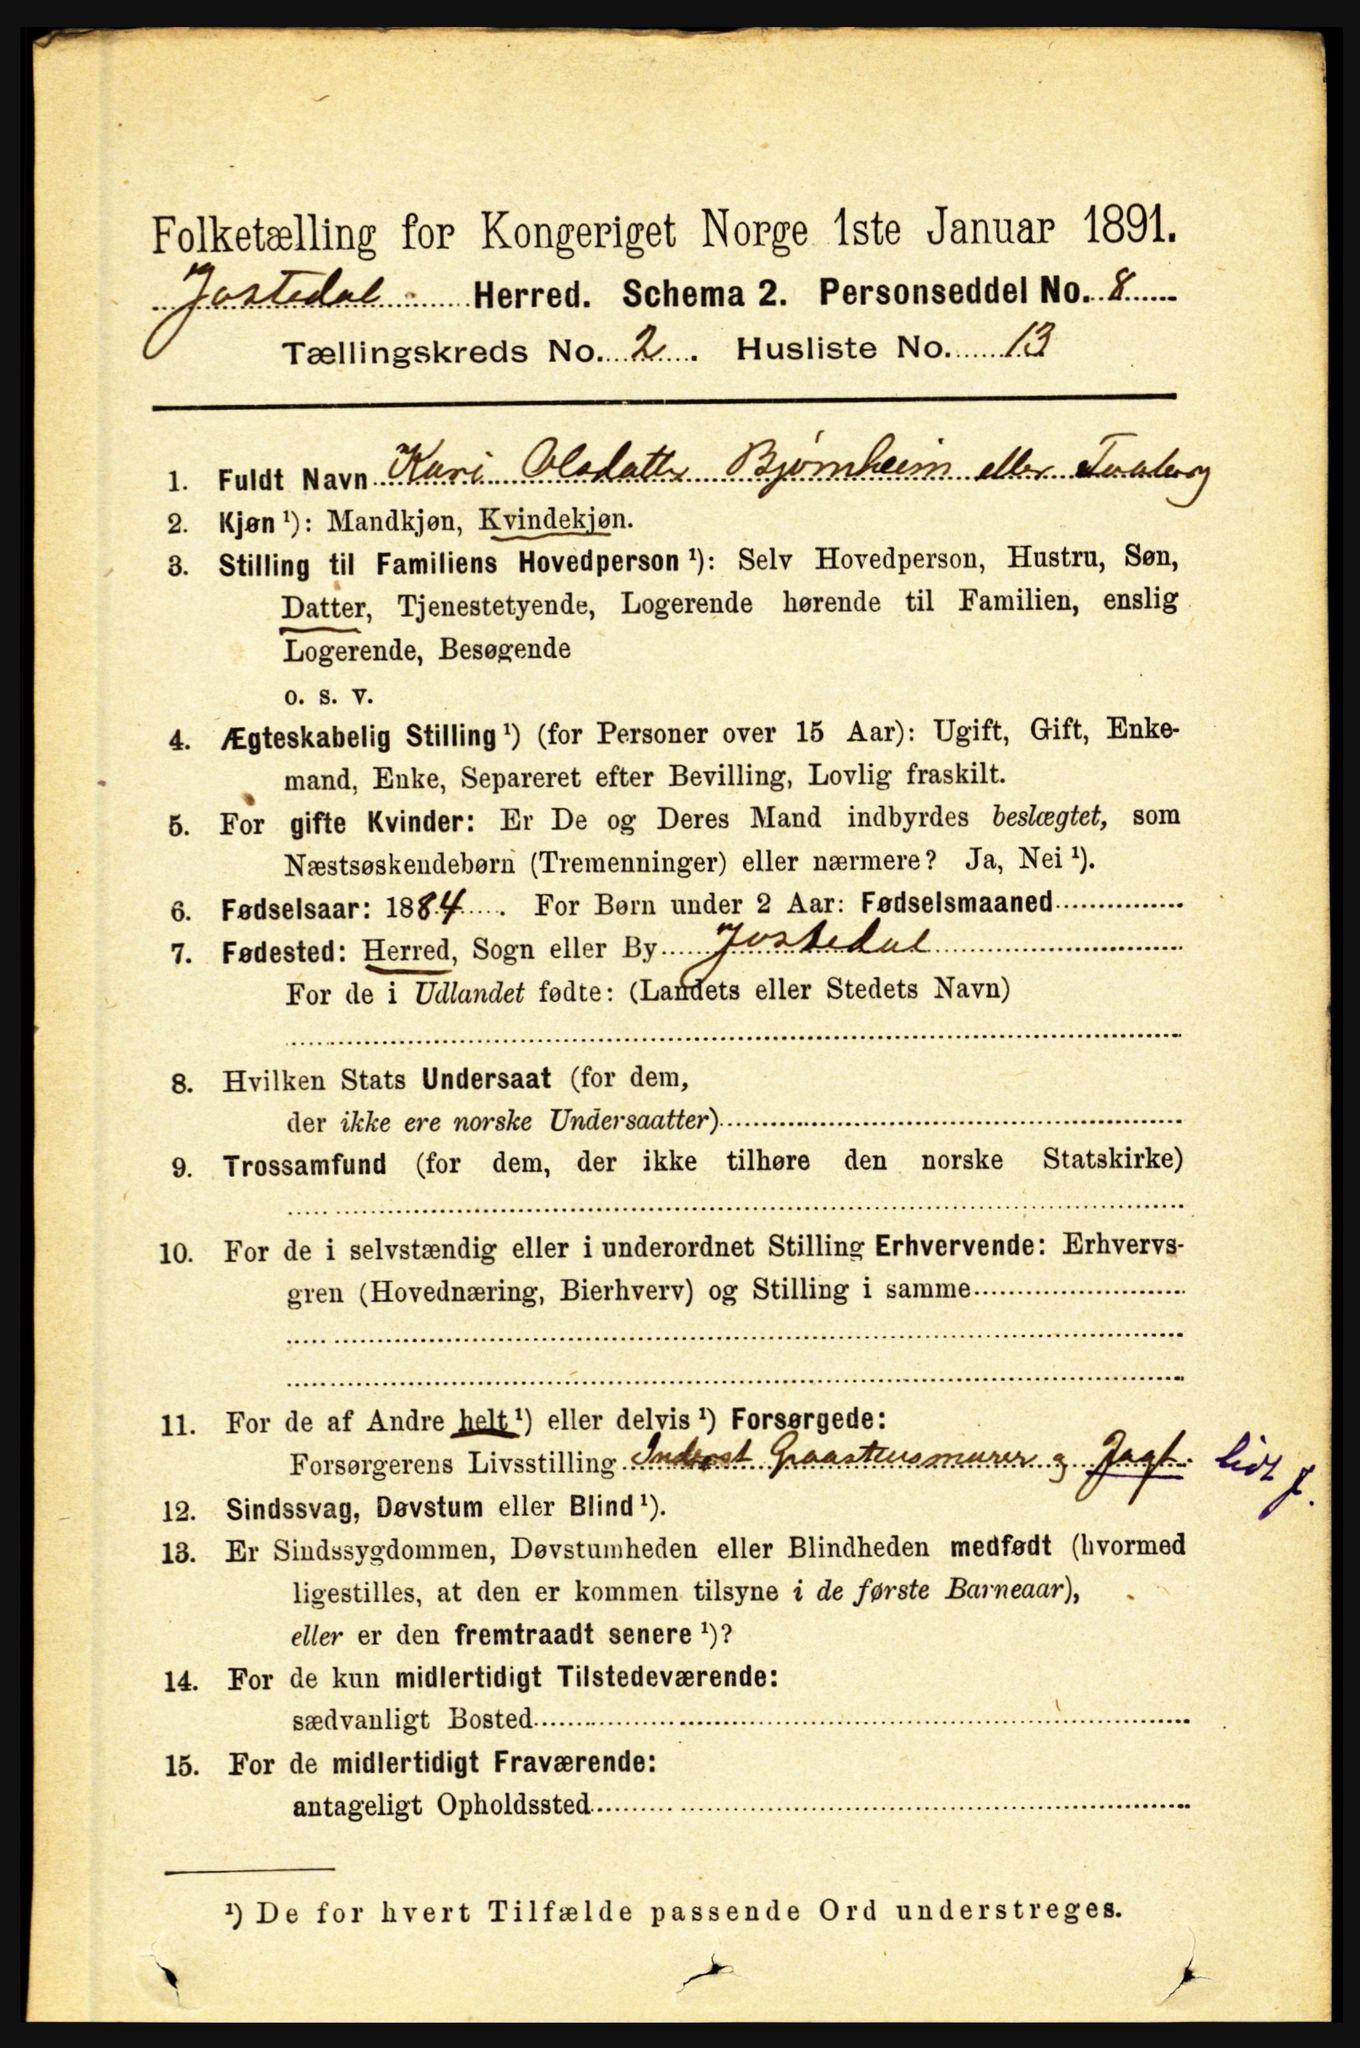 Folketælling for Kongeriget Norge 1ste Januar 1891.
Jostedal Herred. Schema 2. Personseddel No. 8
Tællingskreds No. 2. Husliste No. 13
1. Fuldt Navn Kari Olsdatter Bjørnheim eller Faaberg
2. Kjøn ¹): Mandkjøn, Kvindekjøn.
3. Stilling til Familiens Hovedperson ¹): Selv Hovedperson, Hustru, Søn,
Datter, Tjenestetyende, Logerende hørende til Familien, enslig
Logerende, Besøgende
o. s. v.
4. Ægteskabelig Stilling ¹) (for Personer over 15 Aar): Ugift, Gift, Enke-
mand, Enke, Separeret efter Bevilling, Lovlig fraskilt.
5. For gifte Kvinder: Er De og Deres Mand indbyrdes beslægtet, som
Næstsøskendebørn (Tremenninger) eller nærmere? Ja, Nei ¹).
6. Fødselsaar: 1884. For Børn under 2 Aar: Fødselsmaaned
7. Fødested: Herred, Sogn eller By Jostedal
For de i Udlandet fødte: (Landets eller Stedets Navn)
8. Hvilken Stats Undersaat (for dem,
der ikke ere norske Undersaatter)
9. Trossamfund (for dem, der ikke tilhøre den norske Statskirke)
10. For de i selvstændig eller i underordnet Stilling Erhvervende: Erhvervs-
gren (Hovednæring, Bierhverv) og Stilling i samme
11. For de af Andre helt ¹) eller delvis ¹) Forsørgede:
Forsørgerens Livsstilling Graastensmurer og Jagt. lidt j.
12. Sindssvag, Døvstum eller Blind ¹).
13. Er Sindssygdommen, Døvstumheden eller Blindheden medfødt (hvormed
ligestilles, at den er kommen tilsyne i de første Barneaar),
eller er den fremtraadt senere ¹)?
14. For de kun midlertidigt Tilstedeværende:
sædvanligt Bosted
15. For de midlertidigt Fraværende:
antageligt Opholdssted
¹) De for hvert Tilfælde passende Ord understreges.